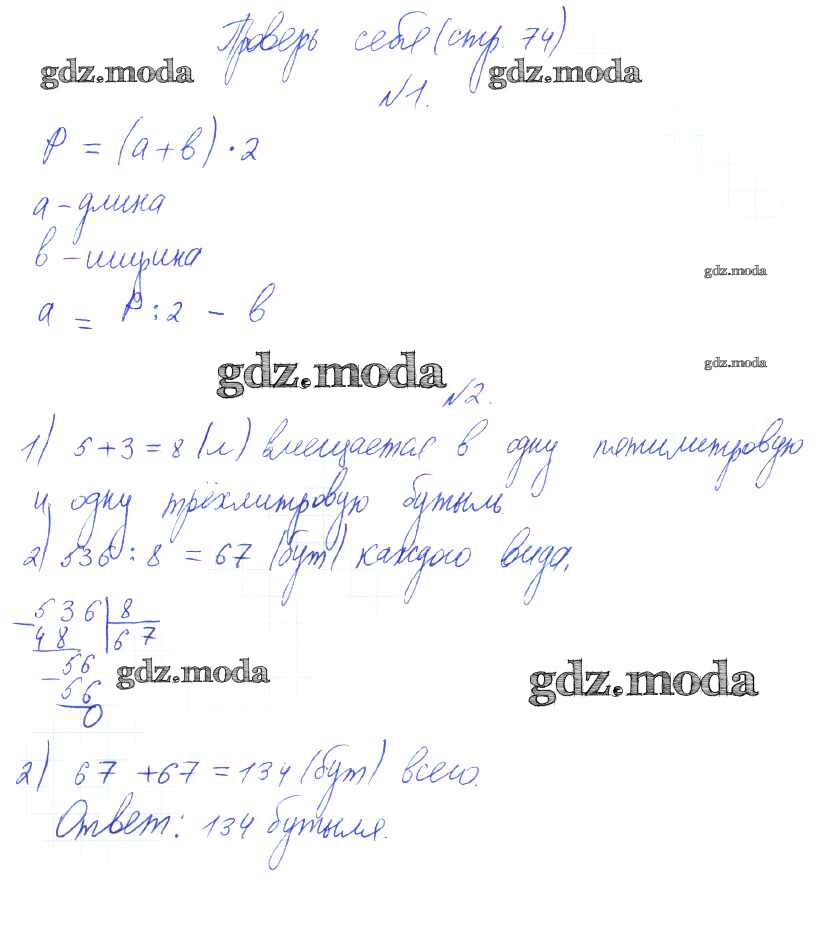 Проверь себя (стр. 74)
gdz.moda gdz.moda
№1.
P = (a + в) · 2
а - длина
в - ширина
gdz.moda
a = P : 2 - в
gdz.moda gdz.moda
№2.
1) 5 + 3 = 8 (л) вмещается в одну пятилитровую
и одну трёхлитровую бутыль
2) 536 : 8 = 67 (бут) каждого вида.
- 536 | 8
48 | 67
- 56
56
0
gdz.moda gdz.moda
2) 67 + 67 = 134 (бут) всего.
Ответ: 134 бутыля.